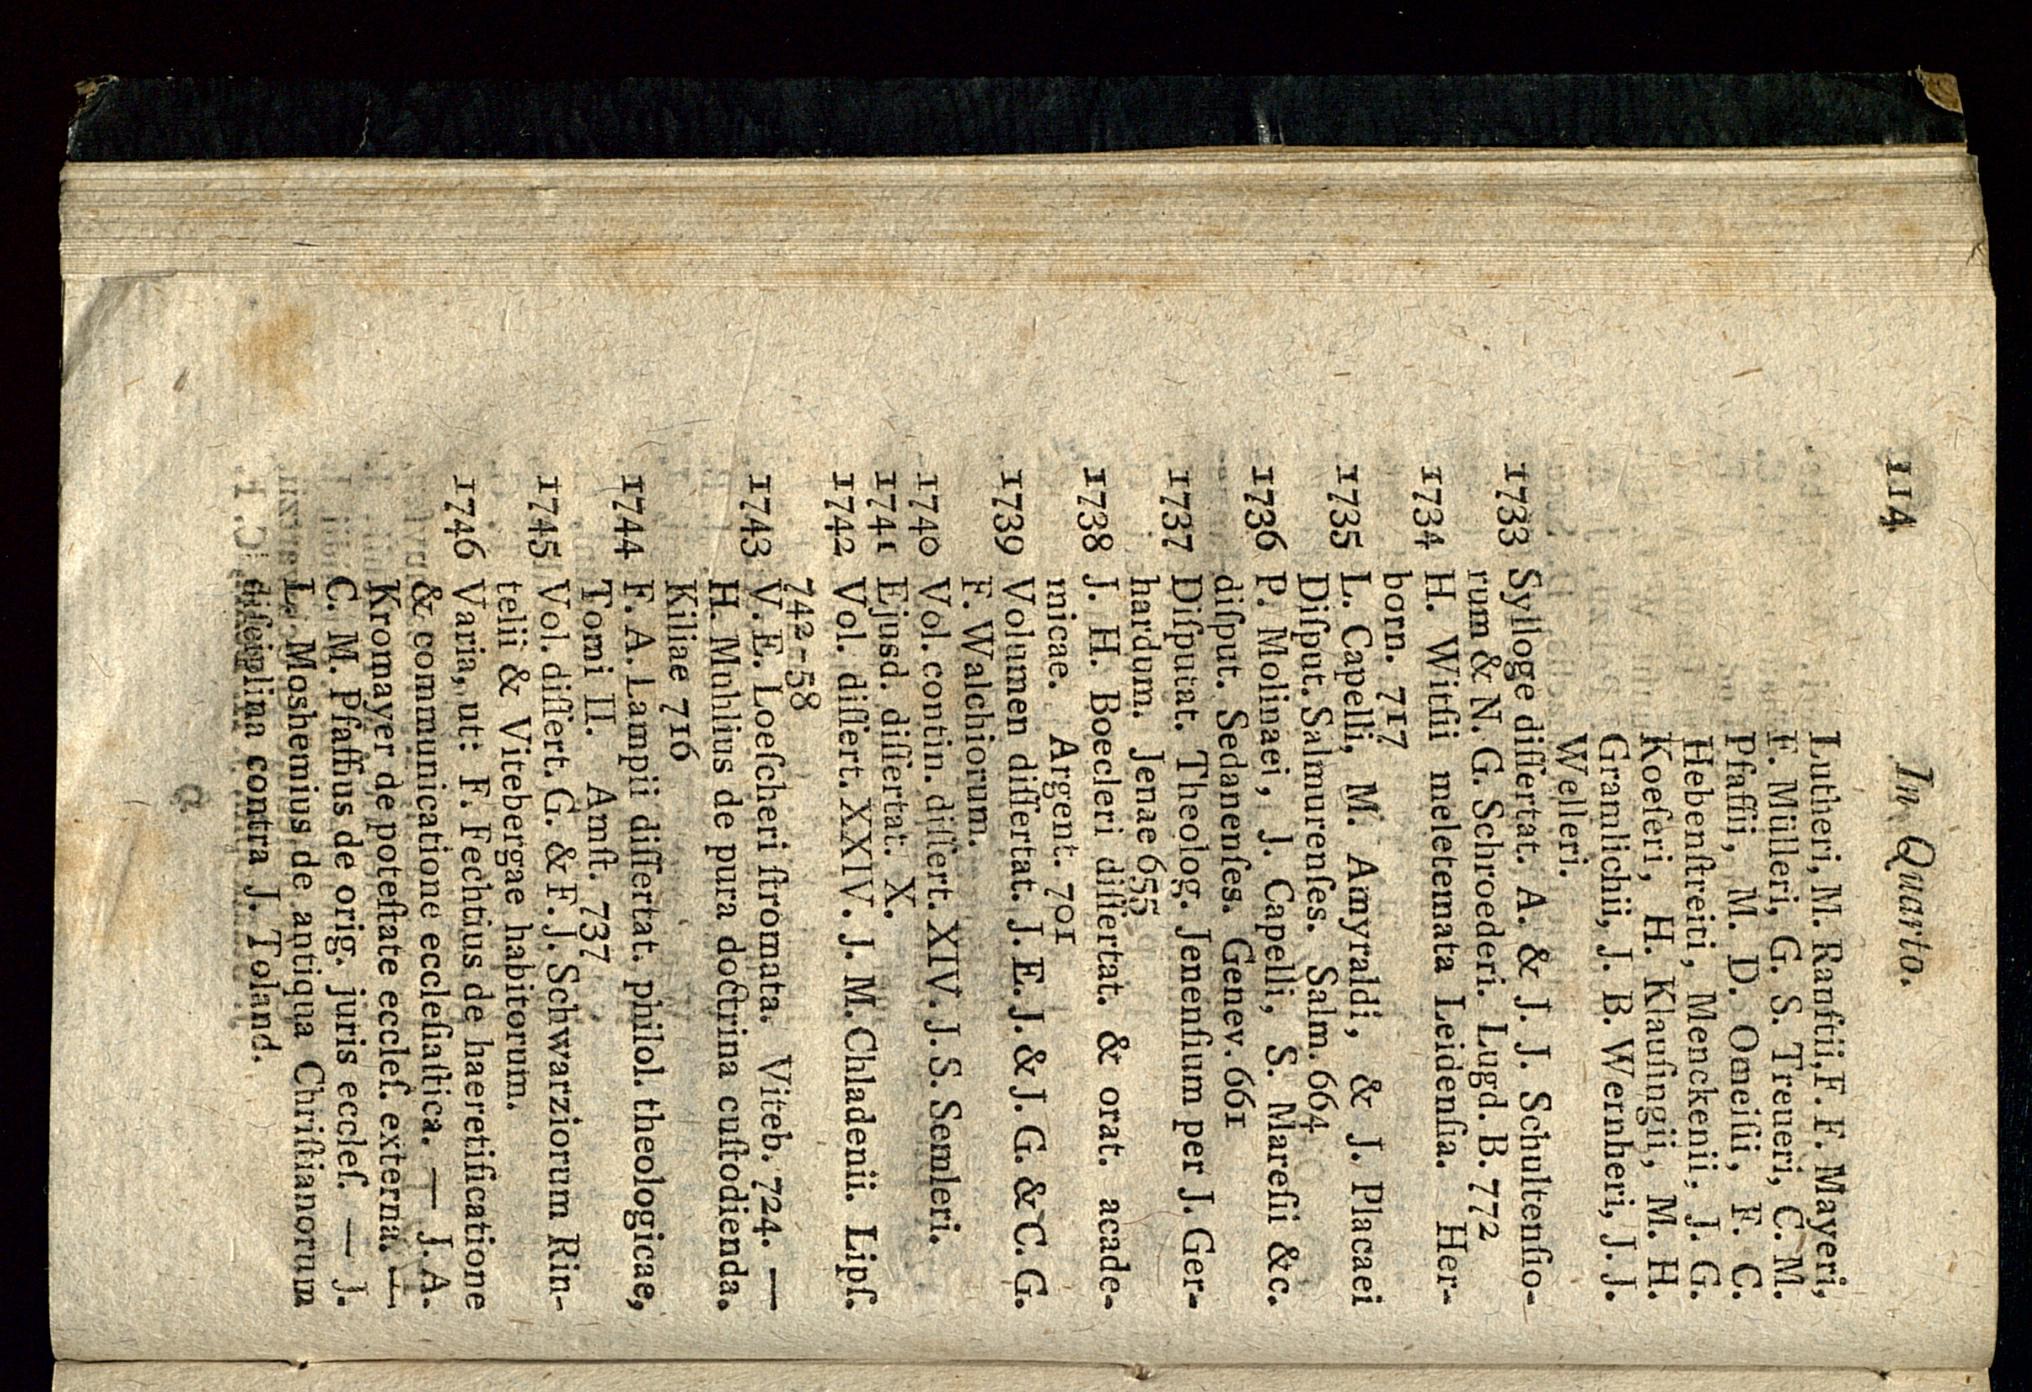 114
In Quarto.
Lutheri, M. Ranſtii, F. F. Mayeri,
F. Mülleri, G. S. Treueri, C. M.
Pfaffii, M. D. Omeiſii, F. C.
Hebenſtreiti, Menckenii, J. G.
Koeſeri, H. Klauſingii, M. H.
Gramlichii, J. B. Wernheri, J. J.
Welleri.
1733 Sylloge diſſertat. A. & J. J. Schultenſio-
rum & N. G. Schroederi. Lugd. B. 772
1734 H. Witſii meletemata Leidenſia. Her-
born. 717
1735 L. Capelli, M. Amyraldi, & J. Placaei
Diſput. Salmurenſes. Salm. 664
1736 P. Molinaei, J. Capelli, S. Mareſii &c.
diſput. Sedanenſes. Genev. 661
1737 Diſputat. Theolog. Jenenſium per J. Ger-
hardum. Jenae 655
1738 J. H. Boecleri diſſertat. & orat. acade-
micae. Argent. 701
1739 Volumen diſſertat. J. E. J. & J. G. & C. G.
F. Walchiorum.
1740 Vol. contin. diſſert. XIV. J. S. Semleri.
1741 Ejusd. diſſertat. X.
1742 Vol. diſſert. XXIV. J. M. Chladenii. Lipſ.
742-58
1743 V. E. Loeſcheri ſtromata. Viteb. 724. —
H. Muhlius de pura doctrina cuſtodienda.
Kiliae 716
1744 F. A. Lampii diſſertat. philol. theologicae,
Tomi II. Amſt. 737
1745 Vol. diſſert. G. & F. J. Schwarziorum Rin-
telii & Vitebergae habitorum.
1746 Varia, ut: F. Fechtius de haeretificatione
& communicatione eccleſiaſtica. — J. A.
Kromayer de poteſtate eccleſ. externa. —
C. M. Pfaffius de orig. juris eccleſ. — J.
L. Moshemius de antiqua Chriſtianorum
diſciplina contra J. Toland.